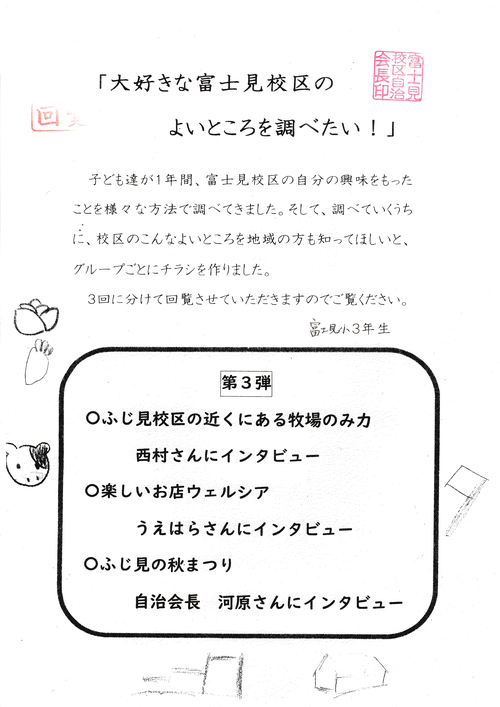 「大好きな富士見校区の
よいところを調べたい！」
富士見
校区自治
会長印
回
子ども達が1年間、富士見校区の自分の興味をもった
ことを様々な方法で調べてきました。そして、調べていくうち
に、校区のこんなよいところを地域の方も知ってほしいと、
グループごとにチラシを作りました。
3回に分けて回覧させていただきますのでご覧ください。
富士見小3年生
第3弾
○ふじ見校区の近くにある牧場のみ力
西村さんにインタビュー
○楽しいお店ウェルシア
うえはらさんにインタビュー
○ふじ見の秋まつり
自治会長　河原さんにインタビュー